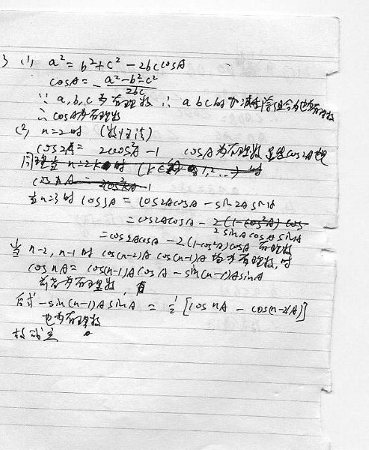 (1) a² = b²+c² - 2bc cosA
cosA = - (a²-b²-c²)/2bc
∵ a,b,c为有理数 ∴ abc的加减乘除组合也为有理数
∴ cosA为有理数
(2) n=2时 (数归法)
cos2A = 2cos²A - 1 cosA为有理数 cos2A也
当n=3时 cos3A = cos2AcosA - sin2A sinA
= cos2AcosA - 2sinAcosA sinA
= cos2AcosA - 2(1-cos²A)cosA 有理数
当 n-2, n-1时 cos(n-2)A cos(n-1)A 均为有理数, 时
cosnA = cos(n-1)A cosA - sin(n-1)A sinA
前者为有理数
后式 -sin(n-1)A sinA = ½[cosnA - cos(n-2)A]
也为有理数